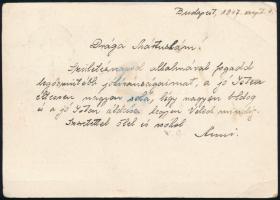 Budapest, 1947. szept.
Drága Mártuskám!
Születésnapod alkalmával fogadd
legőszintébb jókívánságaimat, a jó Isten
éltessen nagyon soká, légy nagyon boldog
és a jó Isten áldása legyen Veled mindig.
Szeretettel ölel és csókol
Anni